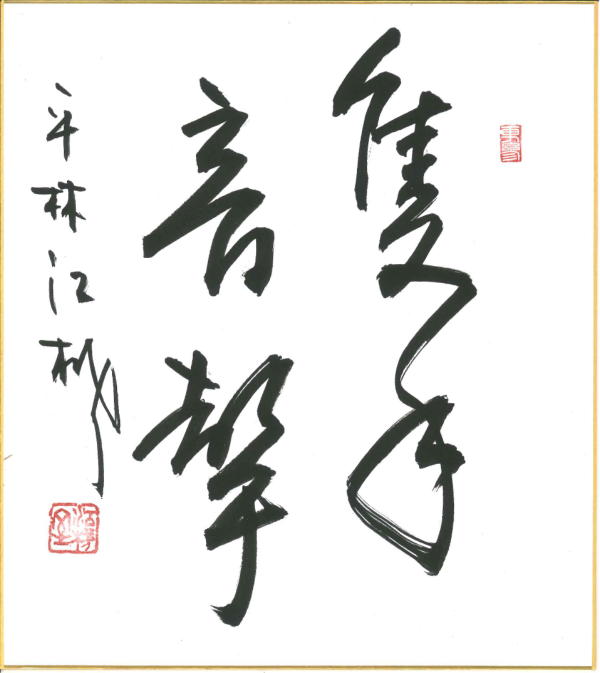 隻手
音聲
平林江楓